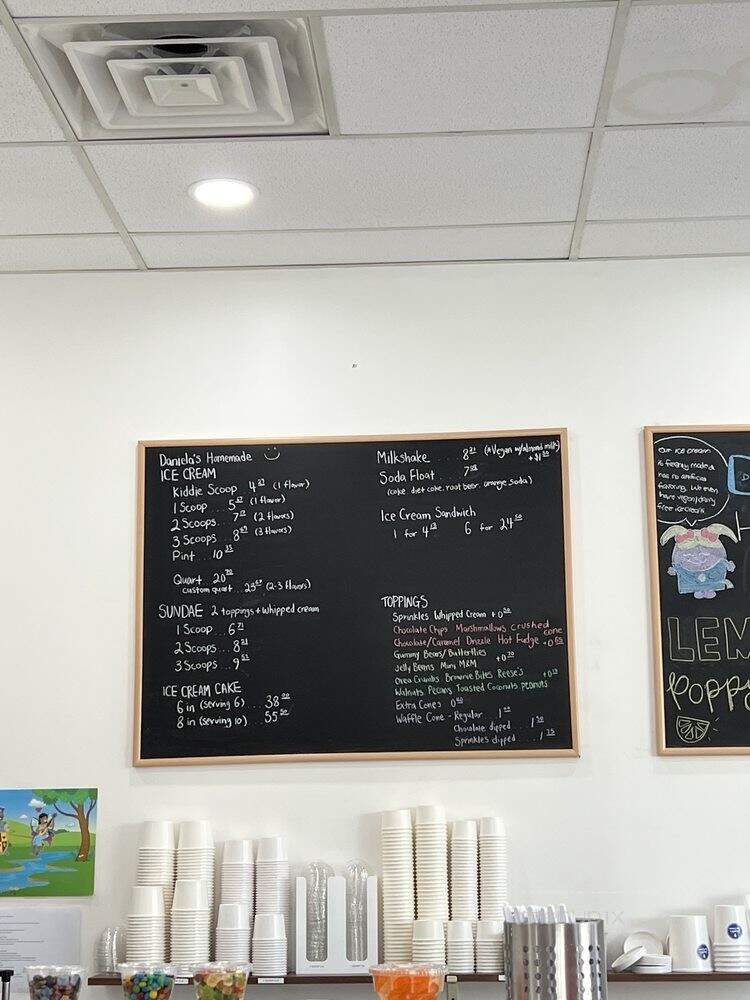 Daniela's Homemade
ICE CREAM
Kiddie Scoop 4 (1 flavor)
1 Scoop ... 5 (1 flavor)
2 Scoops ... 7 (2 flavors)
3 Scoops ... 8 (3 flavors)
Pint ... 10
Quart 20
custom quart ... 23 (2-3 flavors)
SUNDAE 2 toppings + whipped cream
1 Scoop ... 6 71
2 Scoops ... 8 31
3 Scoops ... 9
ICE CREAM CAKE
6 in (serving 6) ... 38
8 in (serving 10) ... 55
Milkshake 8 (Vegan w/almond milk)
+$1
Soda Float 7
(coke diet coke, root beer, orange soda)
Ice Cream Sandwich
1 for 4 6 for 24
TOPPINGS
Sprinkles Whipped Cream +0
Chocolate Chips Marshmallows crushed cone
Chocolate/Caramel Drizzle Hot Fudge +0
Gummy Bears/Butterflies
Jelly Beans Mini M&M +0
Oreo Crumbs Brownie Bites Reese's +0
Walnuts Pecans Toasted Coconuts peanuts
Extra Cones 0
Waffle Cone - Regular 1
Chocolate dipped ... 1
Sprinkles dipped ... 1
our ice cream
is freshly made &
has no artificial
flavoring. We even
have vegan/dairy
free icecreams
LEM
POPPY